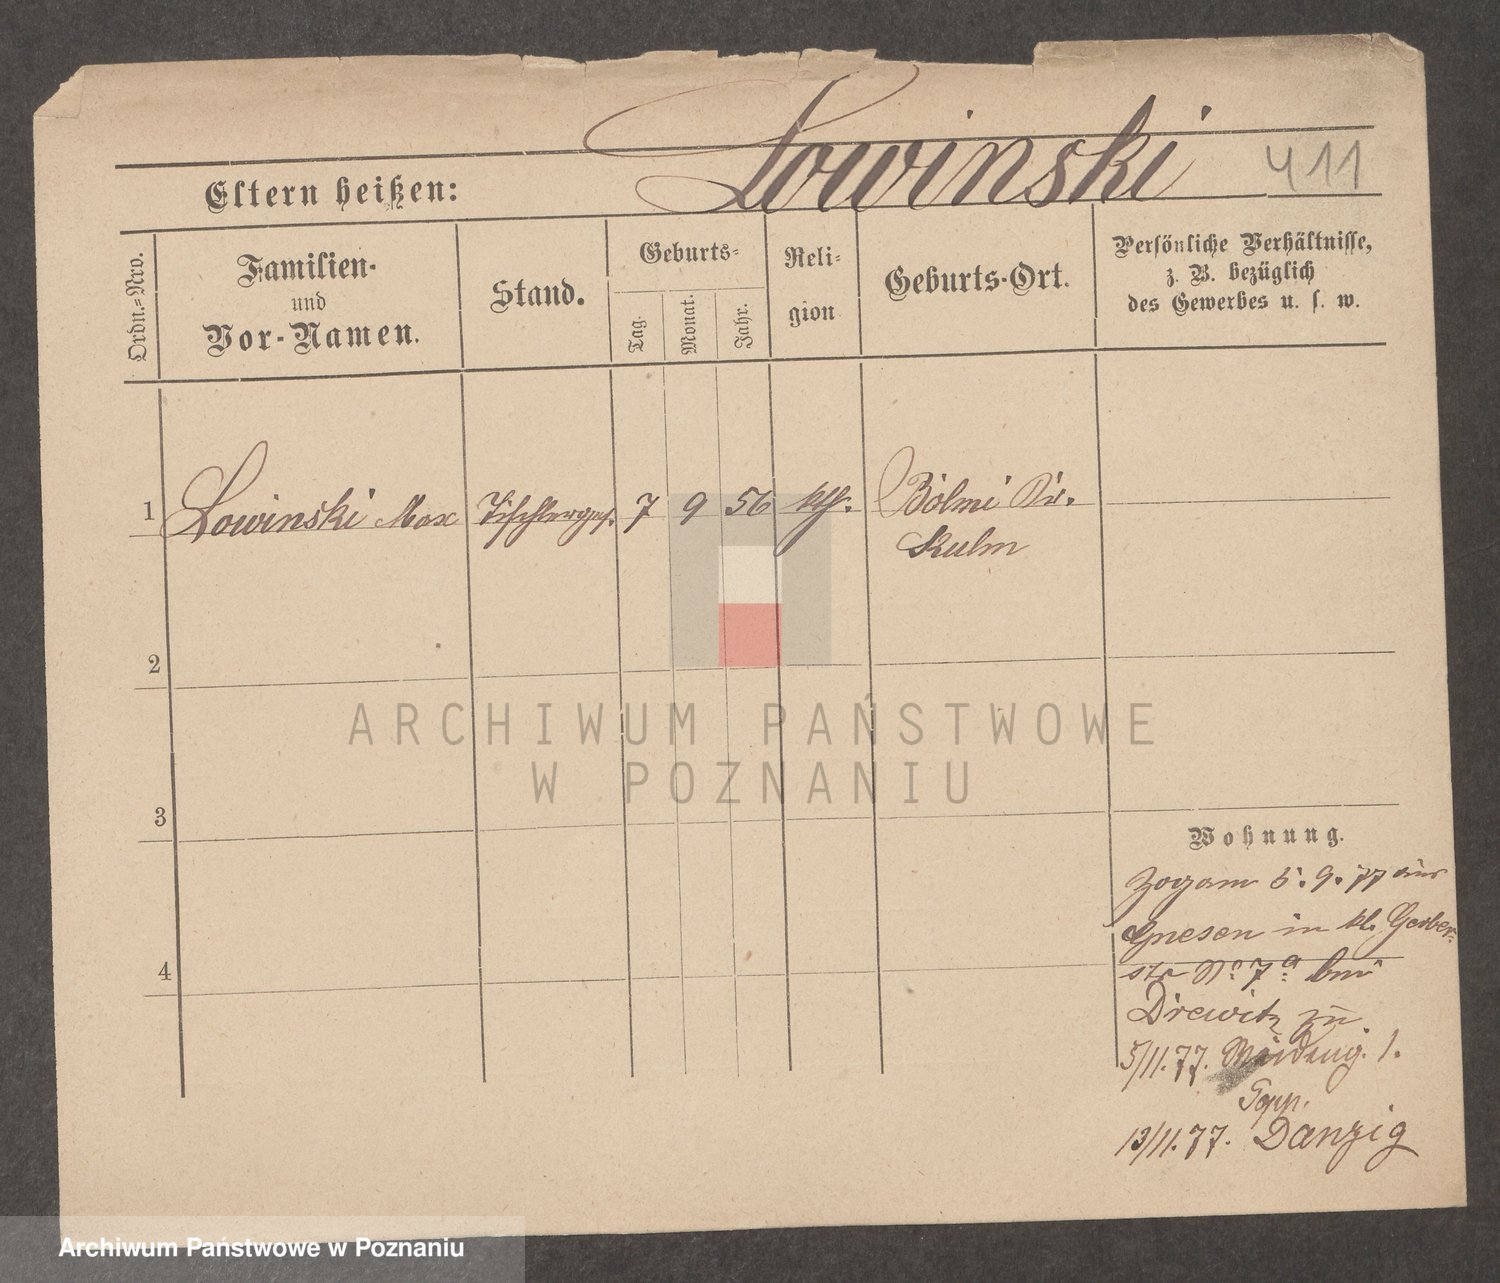 Lowinski
411
Eltern heißen:
Ordn.-Nro.
Familien-
und
Vor-Namen.
Stand.
Geburts-
Tag.
Monat.
Jahr.
Reli-
gion
Geburts-Ort.
Persönliche Verhältnisse,
z. B. bezüglich
des Gewerbes u. s. w.
1
Lowinski Max
Tischlerges.
7
9
56
kth.
Kulm
2
ARCHIWUM PAŃSTWOWE
W POZNANIU
3
Wohnung.
Zugam 5. 9. 77 aus
Gnesen in kl. Gerber-
str No 7a bei
Drewitz zu
5/11.77. 1.
13/11.77. Danzig
4
Archiwum Państwowe w Poznaniu